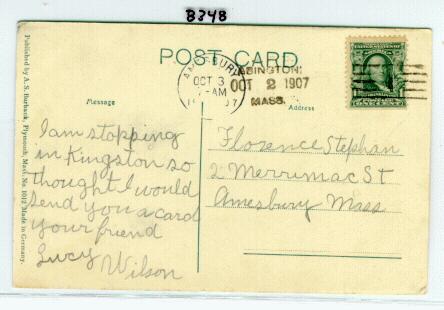 8348
POST CARD
AMESBURY
OCT 3
-AM
ABINGTON
OCT 2 1907
MASS.
ONE CENT
Message
Address
Published by A.S. Burbank, Plymouth, Mass. No. 1012. Made in Germany.
I am stopping
in Kingston so
thought I would
send you a card
your friend
Lucy Wilson
Florence Stephan
2 Merrimac St
Amesbury Mass